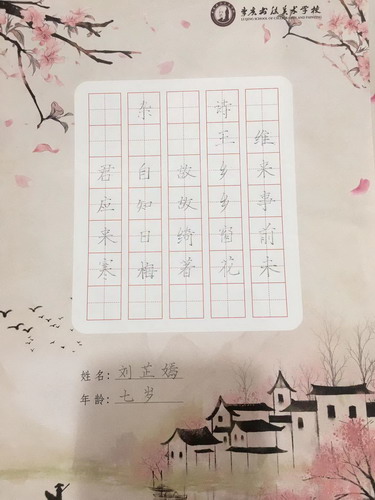 书法美术学校
SCHOOL OF CALLIGRAPHY AND PAINTING
杂诗
王维
君自故乡来
应知故乡事
来日绮窗前
寒梅着花未
姓名：刘芷嫣
年龄：七岁